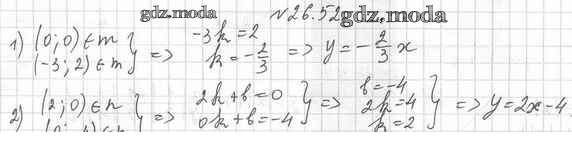 gdz.moda №26.52 gdz.moda
1) (0; 0) ∈ m } => -3k = 2 => y = -2/3 x
(-3; 2) ∈ m } k = -2/3
2) (2; 0) ∈ n } => 2k + b = 0 } => b = -4 } => y = 2x - 4
0k + b = -4 } 2k = 4
k = 2